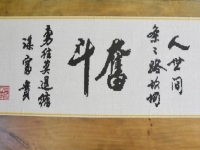 人世间
条々路坎坷
奮斗
勇往莫退缩
富贵